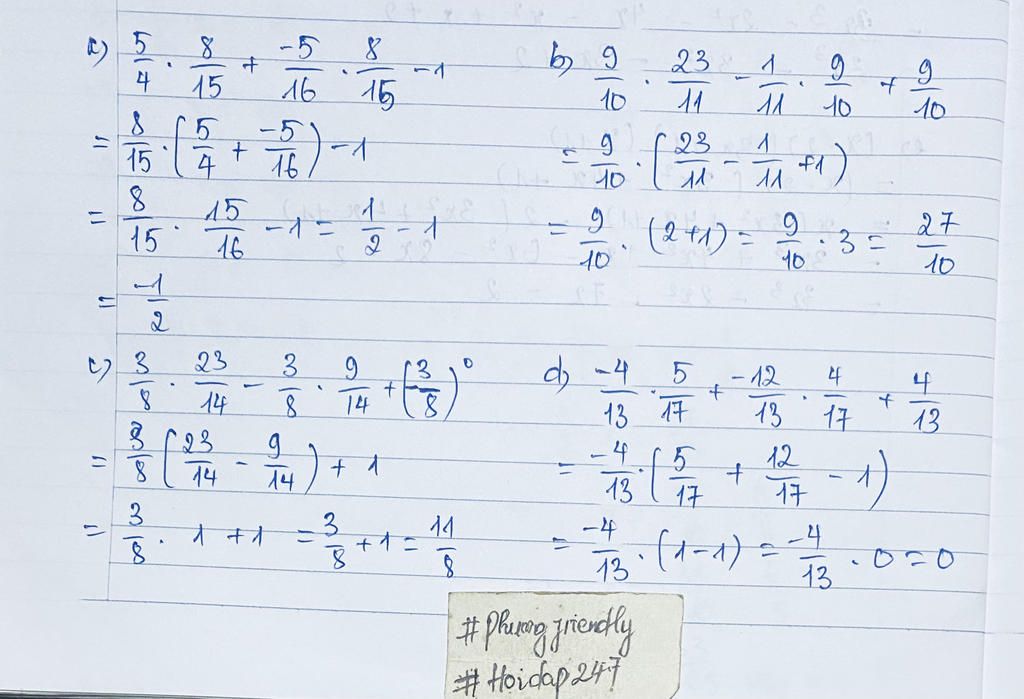 a) 5/4 . 8/15 + -5/16 . 8/15 - 1
= 8/15 . (5/4 + -5/16) - 1
= 8/15 . 15/16 - 1 = 1/2 - 1
= -1/2
b) 9/10 . 23/11 - 1/11 . 9/10 + 9/10
= 9/10 . (23/11 - 1/11 + 1)
= 9/10 . (2+1) = 9/10 . 3 = 27/10
c) 3/8 . 23/14 - 3/8 . 9/14 + (3/-8)^0
= 3/8 (23/14 - 9/14) + 1
= 3/8 . 1 + 1 = 3/8 + 1 = 11/8
d) -4/13 . 5/17 + -12/13 . 4/17 + 4/13
= -4/13 . (5/17 + 12/17 - 1)
= -4/13 . (1-1) = -4/13 . 0 = 0
#Phuongfriendly
#Hoidap247